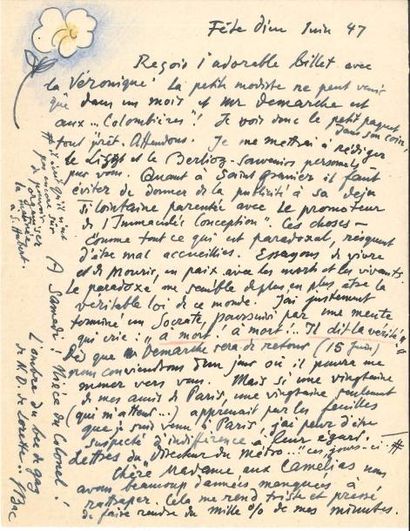 Fête Dieu Juin 47
Reçois l'adorable billet avec
la Véronique! La petite modiste ne peut venir
que dans un mois et Mr Demarche est
aux... Colombières"! Je vois donc le petit paquet
dans son coin,
tout prêt. Attendons. Je me mettrai à rédiger
le Liszt et le Berlioz - souvenirs personnels
pour vous. Quant à Saint Granier il faut
éviter de donner de la publicité à sa déjà
si lointaine parenté avec le promoteur
de l'Immaculée Conception". Ces choses -
comme tout ce qui est paradoxal, risquent
d'être mal accueillies. Essayons de vivre
et de mourir, en paix avec les morts et les vivants
le paradoxe me semble de plus en plus, être la
véritable loi de ce monde. J'ai justement
terminé un Socrate, poursuivi par une meute
qui crie: "à mort! à mort!.. Il dit la vérité"
Dès que Demarche sera de retour (15 Juin)
nous conviendrons d'un jour où il pourra me
mener vers vous. Mais si une vingtaine
de mes amis de Paris, une vingtaine seulement
(qui m'attend...) apprenait par les feuilles
que je suis venu à Paris, j'ai peur d'être
suspecté d'indifférence à leur égard.
Lettres du Directeur du métro... "ces jours-ci #
Chère Madame aux Camélias nous
avons beaucoup d'années manquées à
rattraper. Cela me rend triste et pressé
de faire rendre du mille % de mes minutes.
à St Hubert.
A Samedi! Nièce du Colonel!
L'ombre du bec de gaz
de N.D. de Lorette.. J Bac